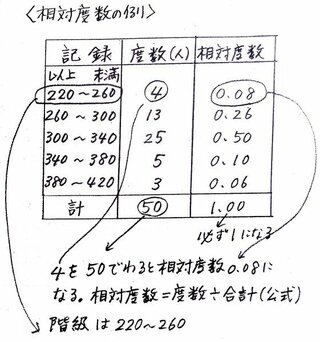 〈相対度数の例〉
記録 度数(人) 相対度数
以上 未満
220～260 4 0.08
260～300 13 0.26
300～340 25 0.50
340～380 5 0.10
380～420 3 0.06
計 50 1.00
必ず1になる
4を50でわると相対度数0.08に
なる。相対度数=度数÷合計(公式)
階級は220～260